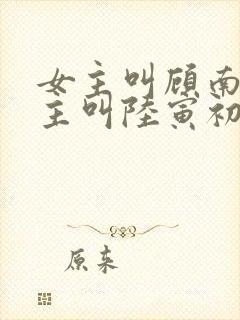 女主叫顾南
主叫陆寅初
原来